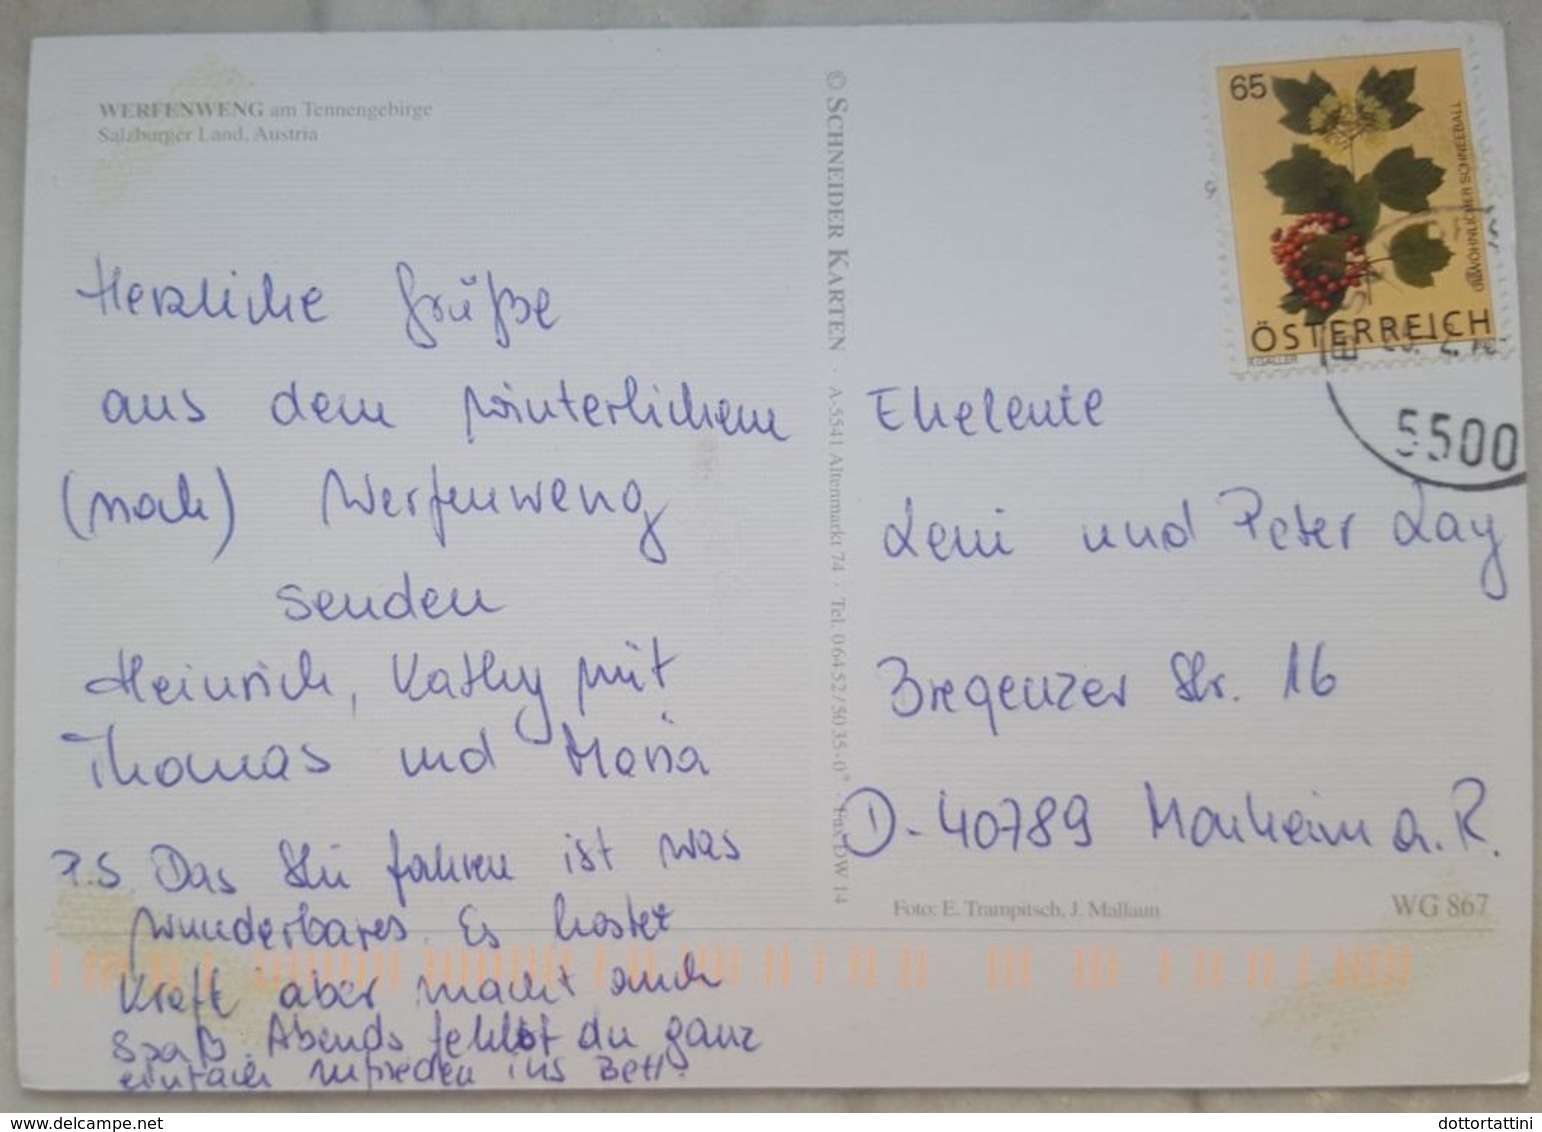 WERFENWENG am Tennengebirge
Salzburger Land, Austria
Herzliche Grüße
aus dem winterlichem
(noch) Werfenweng
senden
Heinrich, Kathy mit
Thomas und Maria
P.S. Das Ski fahren ist was
wunderbares. Es kostet
Kraft aber macht auch
Spaß. Abends fehlst du ganz
einfach zufrieden ins Bett.
© SCHNEIDER KARTEN · A-5541 Altenmarkt 74 · Tel. 06452/5035-0* · Fax DW 14
65
GEWÖHNLICHER SCHNEEBALL
ÖSTERREICH
5500
Eheleute
Leni und Peter Lay
Bregenzer Str. 16
D-40789 Monheim a. R.
Foto: E. Trampitsch, J. Mallaun
WG 867
© www.delcampe.net
dottortattini